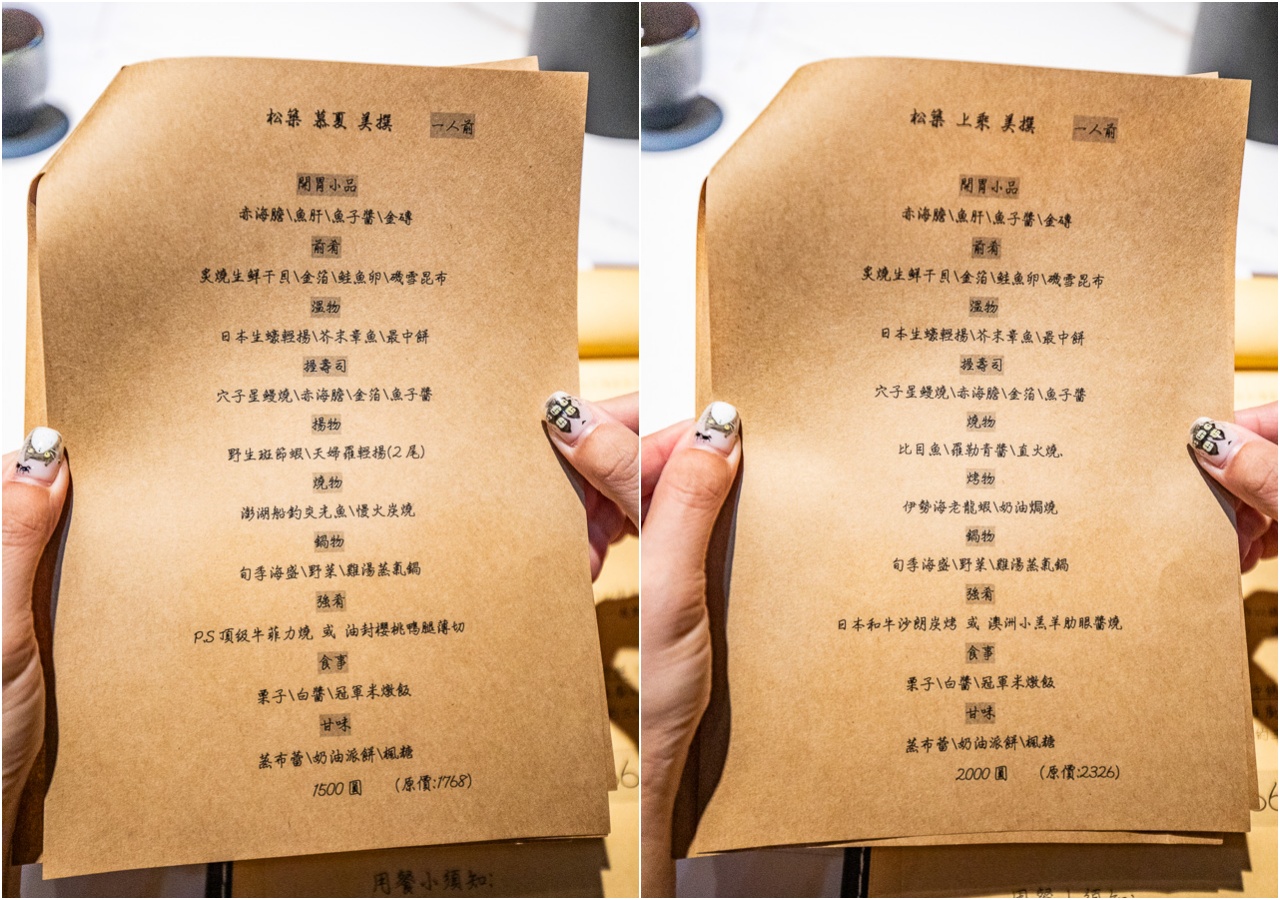 松築 慕夏 美撰 一人前
開胃小品
赤海膽\魚肝\魚子醬\金磚
前肴
炙燒生鮮干貝\金箔\鮭魚卵\磯雪昆布
溫物
日本生蠔輕揚\芥末章魚\最中餅
握壽司
穴子星鰻燒\赤海膽\金箔\魚子醬
揚物
野生斑節蝦\天婦羅輕揚(2尾)
燒物
澎湖船釣夾光魚\慢火炭燒
鍋物
旬季海盛\野菜\雞湯蒸氣鍋
強肴
P.S頂級牛菲力燒 或 油封櫻桃鴨腿薄切
食事
栗子\白醬\冠軍米燉飯
甘味
蒸布蕾\奶油派餅\楓糖
1500圓 (原價:1768)
用餐小須知:
松築 上乘 美撰 一人前
開胃小品
赤海膽\魚肝\魚子醬\金磚
前肴
炙燒生鮮干貝\金箔\鮭魚卵\磯雪昆布
溫物
日本生蠔輕揚\芥末章魚\最中餅
握壽司
穴子星鰻燒\赤海膽\金箔\魚子醬
燒物
比目魚\羅勒青醬\直火燒.
烤物
伊勢海老龍蝦\奶油焗燒
鍋物
旬季海盛\野菜\雞湯蒸氣鍋
強肴
日本和牛沙朗炭烤 或 澳洲小羔羊肋眼醬燒
食事
栗子\白醬\冠軍米燉飯
甘味
蒸布蕾\奶油派餅\楓糖
2000圓 (原價:2326)